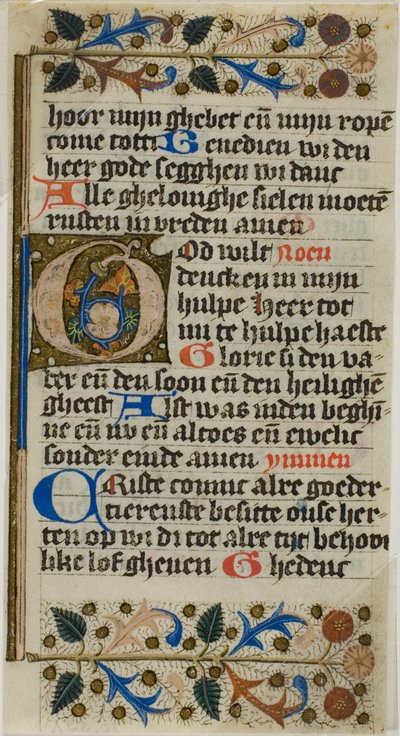 hoor mijn ghebet en̄ mijn ropē
come totti Benedien wi den
heer gode segghen wi danc
Alle ghelouighe sielen moetē
rusten in vreden amen
God wilt Noen
dencken in mijn
hulpe heer tot
mi te hulpe haeste
Glorie si den va⸗
der en̄ den soon en̄ den heilighē
gheest Alst was inden beghī
ne en̄ nv en̄ altoes en̄ ewelic
sonder einde amen ymmen
Criste comuc alre goeder
tierenste besitte onse her
ten op wi di tot alre tijt behou
like lof gheuen Ghedenc